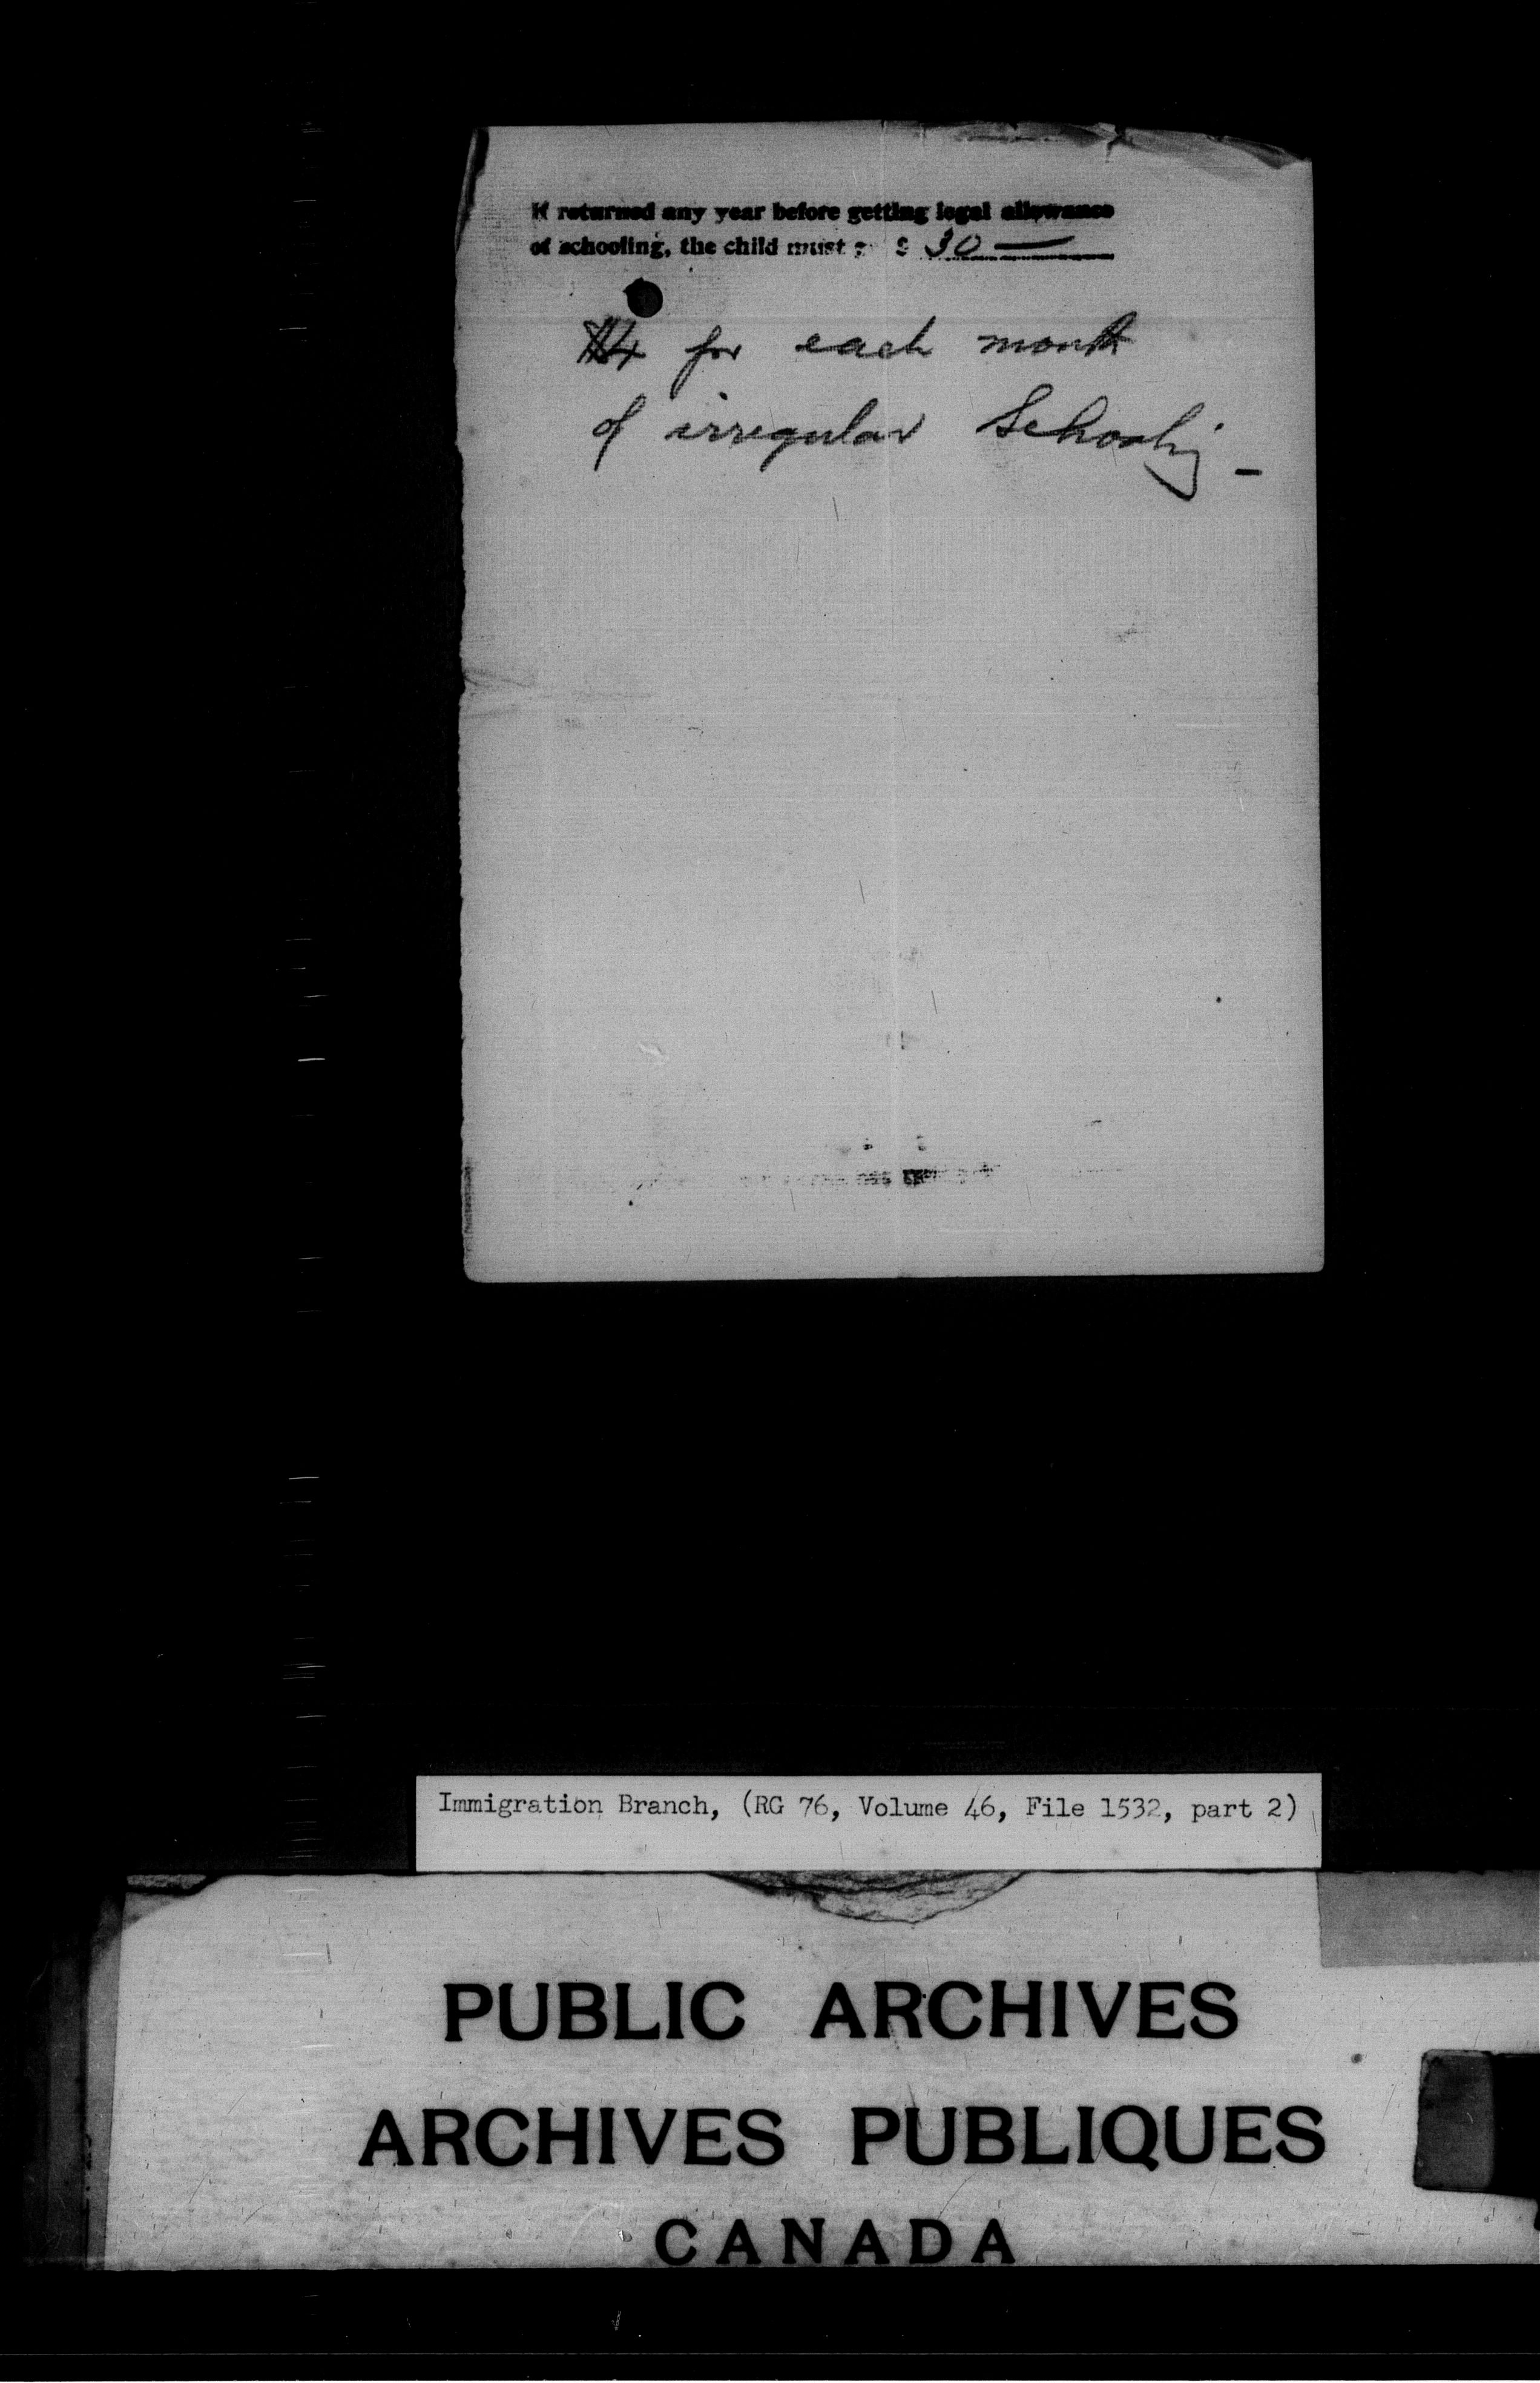 If returned any year before getting legal allowance
of schooling, the child must $ 30 —
$4 for each month
of irregular Schooling —
Immigration Branch, (RG 76, Volume 46, File 1532, part 2)
PUBLIC ARCHIVES
ARCHIVES PUBLIQUES
CANADA